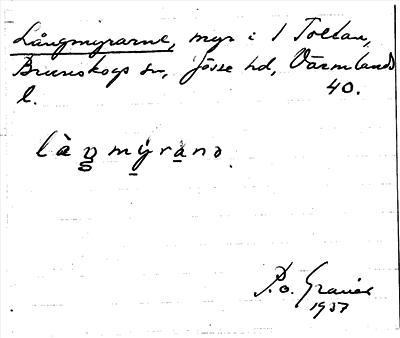 Långmyrarne, myr i 1 Tolltan,
Brunskogs sn, Jösse hd, Värmlands
l. 40.
là ŋ myrana.
P.O. Granér
1937